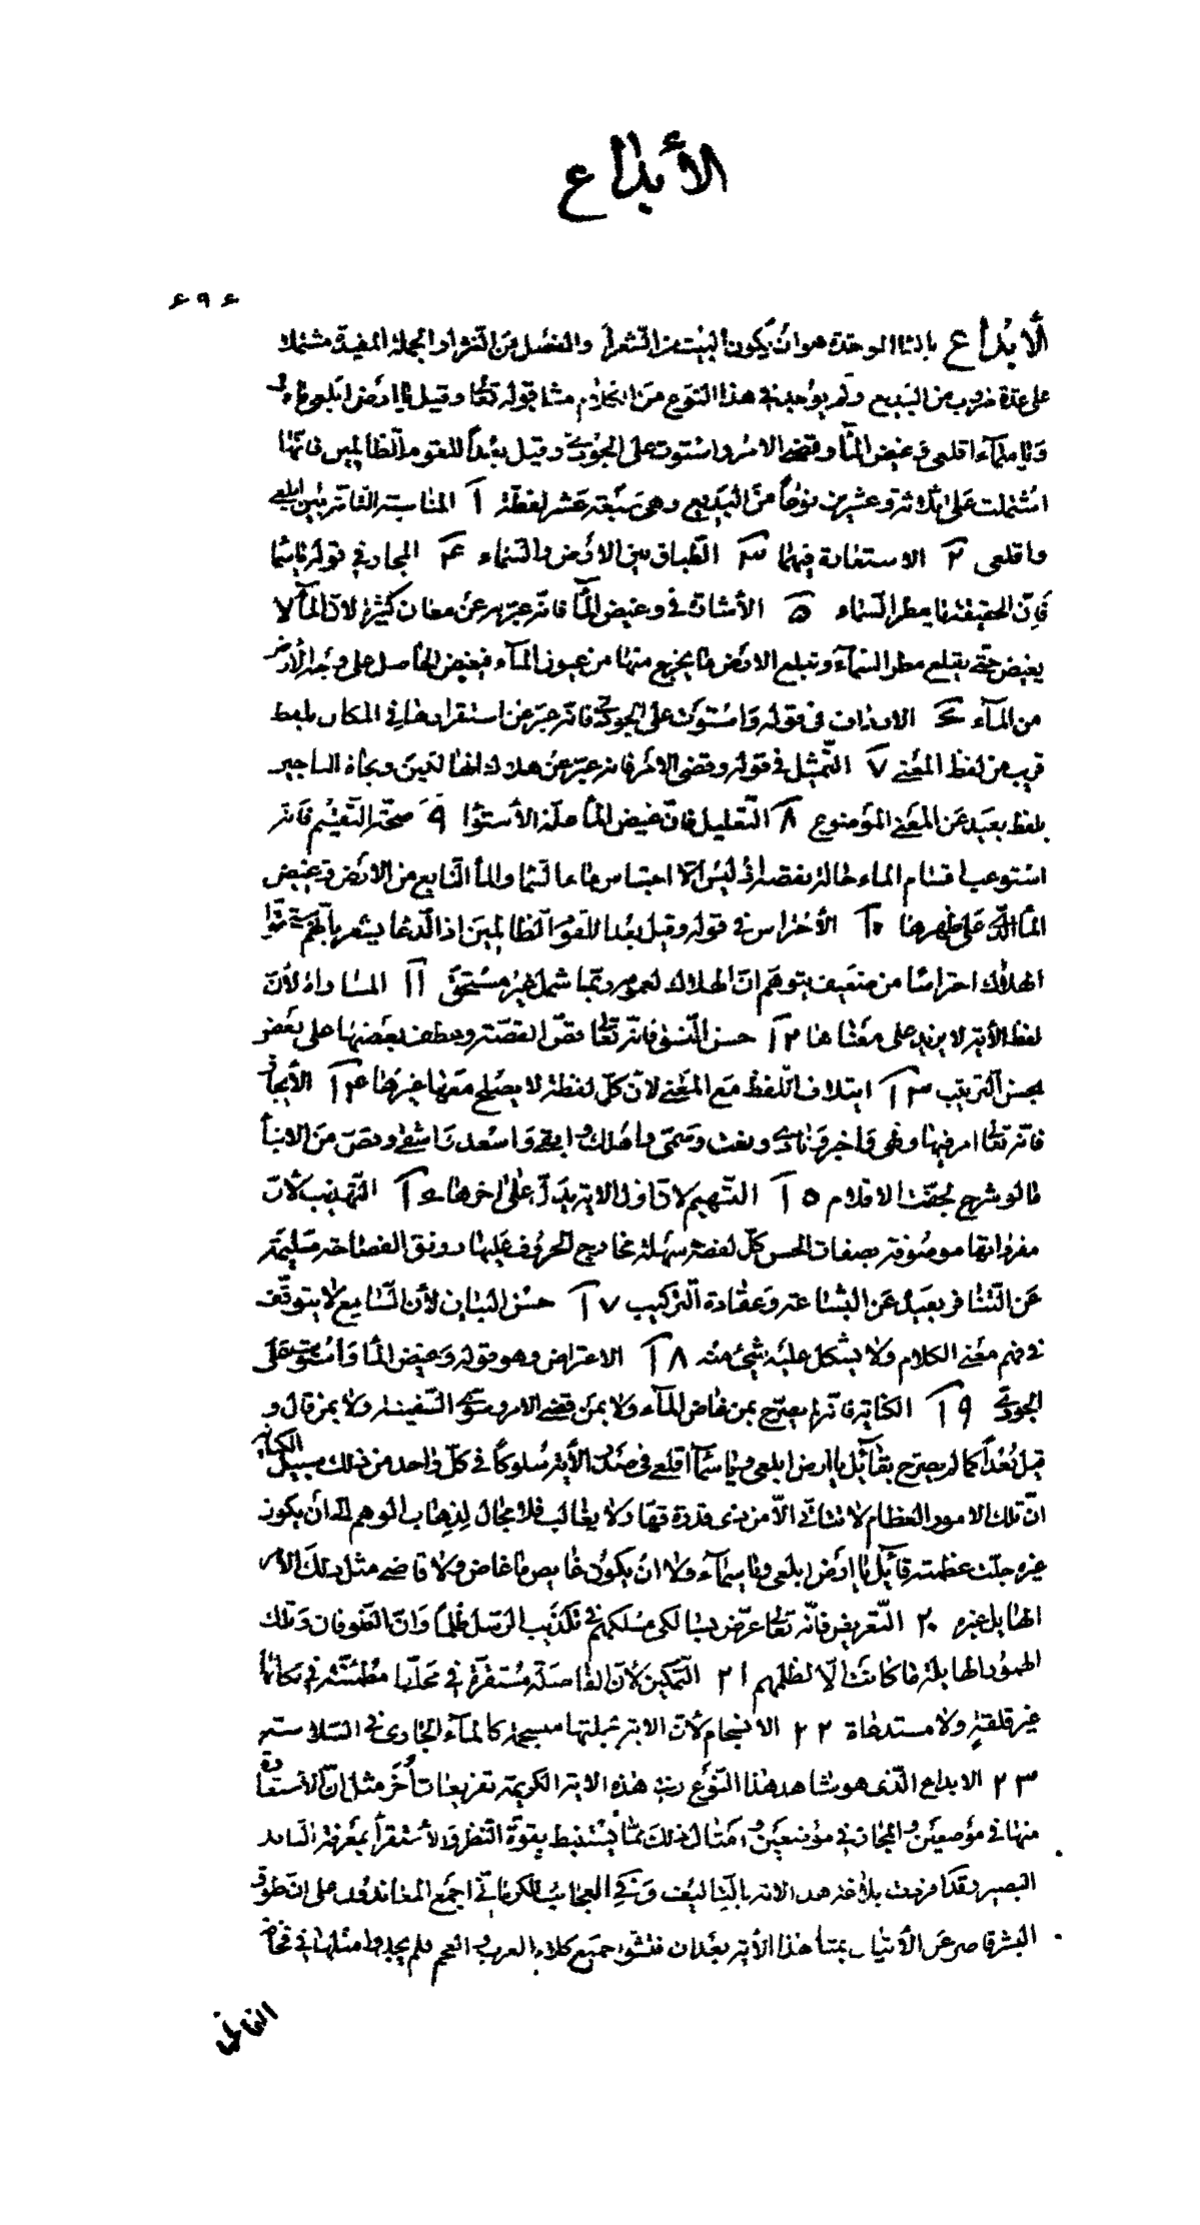 الأبداع
٤٩٤
الابداع بالباء الموحدة هو ان يكون البيت من الشعر او الفصل من النثر او الجملة المفيدة مشتملة
على عدة ضروب من البديع ولم يوجد في هذا النوع من الكلام مثل قوله تعالى وقيل يا ارض ابلعي ماءك
ويا سماء اقلعي وغيض الماء وقضي الامر واستوت على الجودي وقيل بعداً للقوم الظالمين فانها
اشتملت على ثلاثة وعشرين نوعاً من البديع وهي سبعة عشر لفظة ١ المناسبة التامة بين ابلعي
واقلعي ٢ الاستعارة فيهما ٣ الطباق بين الارض والسماء ٤ المجاز في قوله يا سماء
فان الحقيقة يا مطر السماء ٥ الأشارة في وغيض الماء فانه عبر به عن معان كثيرة لان الماء لا
يغيض حتى يقلع مطر السماء وتبلع الارض ما يخرج منها من عيون الماء فيغيض الحاصل على وجه الارض
من الماء ٦ الارداف في قوله واستوت على الجودي فانه عبر عن استقرارها في المكان بلفظ
قريب من لفظ المعنى ٧ التمثيل في قوله وقضى الامر فانه عبر عن هلاك الهالكين ونجاة الناجين
بلفظ بعيد عن المعنى الموضوع ٨ التعليل فان غيض الماء علة الأستواء ٩ صحة التقسيم فانه
استوعب اقسام الماء حالة نقصه اذ ليس الا احتباس ماء السماء والماء النابع من الارض وغيض
الماء الذي على ظهرها ١٠ الأحتراس في قوله وقيل بعدا للقوم الظالمين اذ الدعاء يشعر بانهم مستحقوا
الهلاك احتراسا من ضعيف يتوهم ان الهلاك لعمومه ربما شمل غير مستحق ١١ المساواة لأن
لفظ الأية لا يزيد على معناها ١٢ حسن النسق فانه تعالى قص القصة وعطف بعضها على بعض
بحسن الترتيب ١٣ ايتلاف اللفظ مع المعنى لان كل لفظة لا يصلح معها غيرها ١٤ الأيجاز
فانه تعالى امر فيها ونهى واخبر ونادى ونعت وسمى واهلك وابقى واسعد واشقى وقص من الانباء
ما لو شرح لجفت الاقلام ١٥ التسهيم لان اول الاية يدل على اخرها ١٦ التهذيب لأن
مفرداتها موصوفة بصفات الحسن كل لفظة سهلة مخارج الحروف عليها رونق الفصاحة سليمة
عن التنافر بعيد عن البشاعة وعقادة التركيب ١٧ حسن البيان لأن السامع لا يتوقف
في فهم معنى الكلام ولا يشكل عليه شيء منه ١٨ الاعتراض وهو قوله وغيض الماء واستوت على
الجودي ١٩ الكناية فانه لم يصرح بمن غاض الماء ولا بمن قضى الامر وسوى السفينة ولا بمن قال و
قيل بعداً كما لم يصرح بقائل يا ارض ابلعي ويا سماء اقلعي في صدر الأية سلوكاً في كل واحد من ذلك سبيل الكناية
ان تلك الامور العظام لا تتأتى الا من ذي قدرة قهار لا يغالب فلا مجال لذهاب الوهم الى أن يكون
غيره جلت عظمته قائل يا ارض ابلعي ويا سماء ولا ان يكون غايض ما غاض ولا قاضي مثل ذلك الامر
الهايل غيره ٢٠ التعريض فانه تعالى عرض بسالكي مسلكهم في تكذيب الرسل ظلماً وان الطوفان وتلك
الصور الهايلة ما كانت الا لظلمهم ٢١ التمكين لأن الفاصلة مستقرة في محلها مطمئنة في مكانها
غير قلقة ولا مستدعاة ٢٢ الانسجام لأن الاية بجملتها منسجمة كالماء الجاري في السلاسة
٢٣ الابداع الذي هو شاهد هذا النوع وفي هذه الاية الكريمة تفريعات أخر مثل ان الاستعارة
منها في موضعين والمجاز في موضعين وامثال ذلك مما يستنبط بقوة النظر والأستقراء بمعرفة الناقد
البصير وقد افردت بلاغة هذه الاية بالتاليف وفي العجائب للكرماني اجمع المعاندون على ان طوق
البشر قاصر عن الأتيان بمثل هذا الأية بعد ان فتشوا جميع كلام العرب والعجم فلم يجدوا مثلها في فخامة